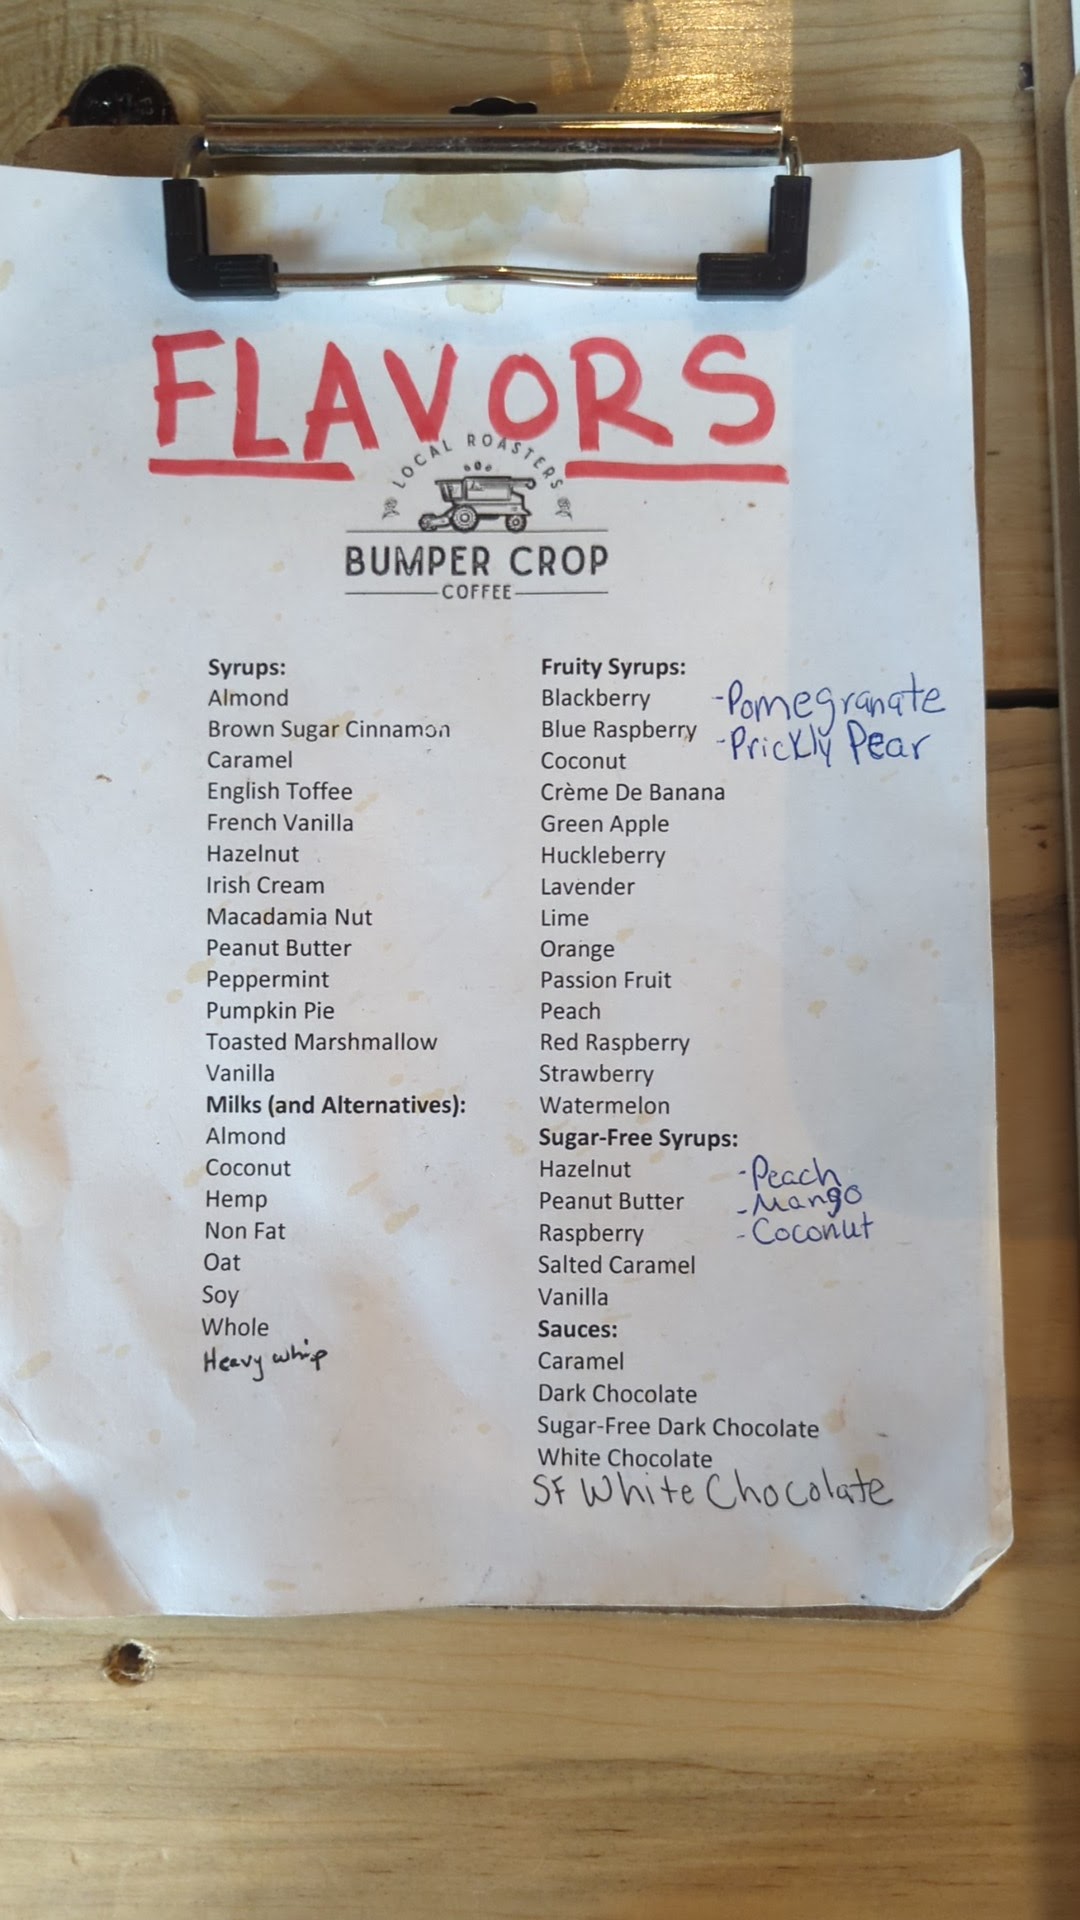 FLAVORS
LOCAL ROASTERS
BUMPER CROP
COFFEE
Syrups:
Almond
Brown Sugar Cinnamon
Caramel
English Toffee
French Vanilla
Hazelnut
Irish Cream
Macadamia Nut
Peanut Butter
Peppermint
Pumpkin Pie
Toasted Marshmallow
Vanilla
Milks (and Alternatives):
Almond
Coconut
Hemp
Non Fat
Oat
Soy
Whole
Heavy whip
Fruity Syrups:
Blackberry
Blue Raspberry
Coconut
Crème De Banana
Green Apple
Huckleberry
Lavender
Lime
Orange
Passion Fruit
Peach
Red Raspberry
Strawberry
Watermelon
-Pomegranate
-Prickly Pear
Sugar-Free Syrups:
Hazelnut
Peanut Butter
Raspberry
Salted Caramel
Vanilla
-Peach
-Mango
-Coconut
Sauces:
Caramel
Dark Chocolate
Sugar-Free Dark Chocolate
White Chocolate
SF White Chocolate